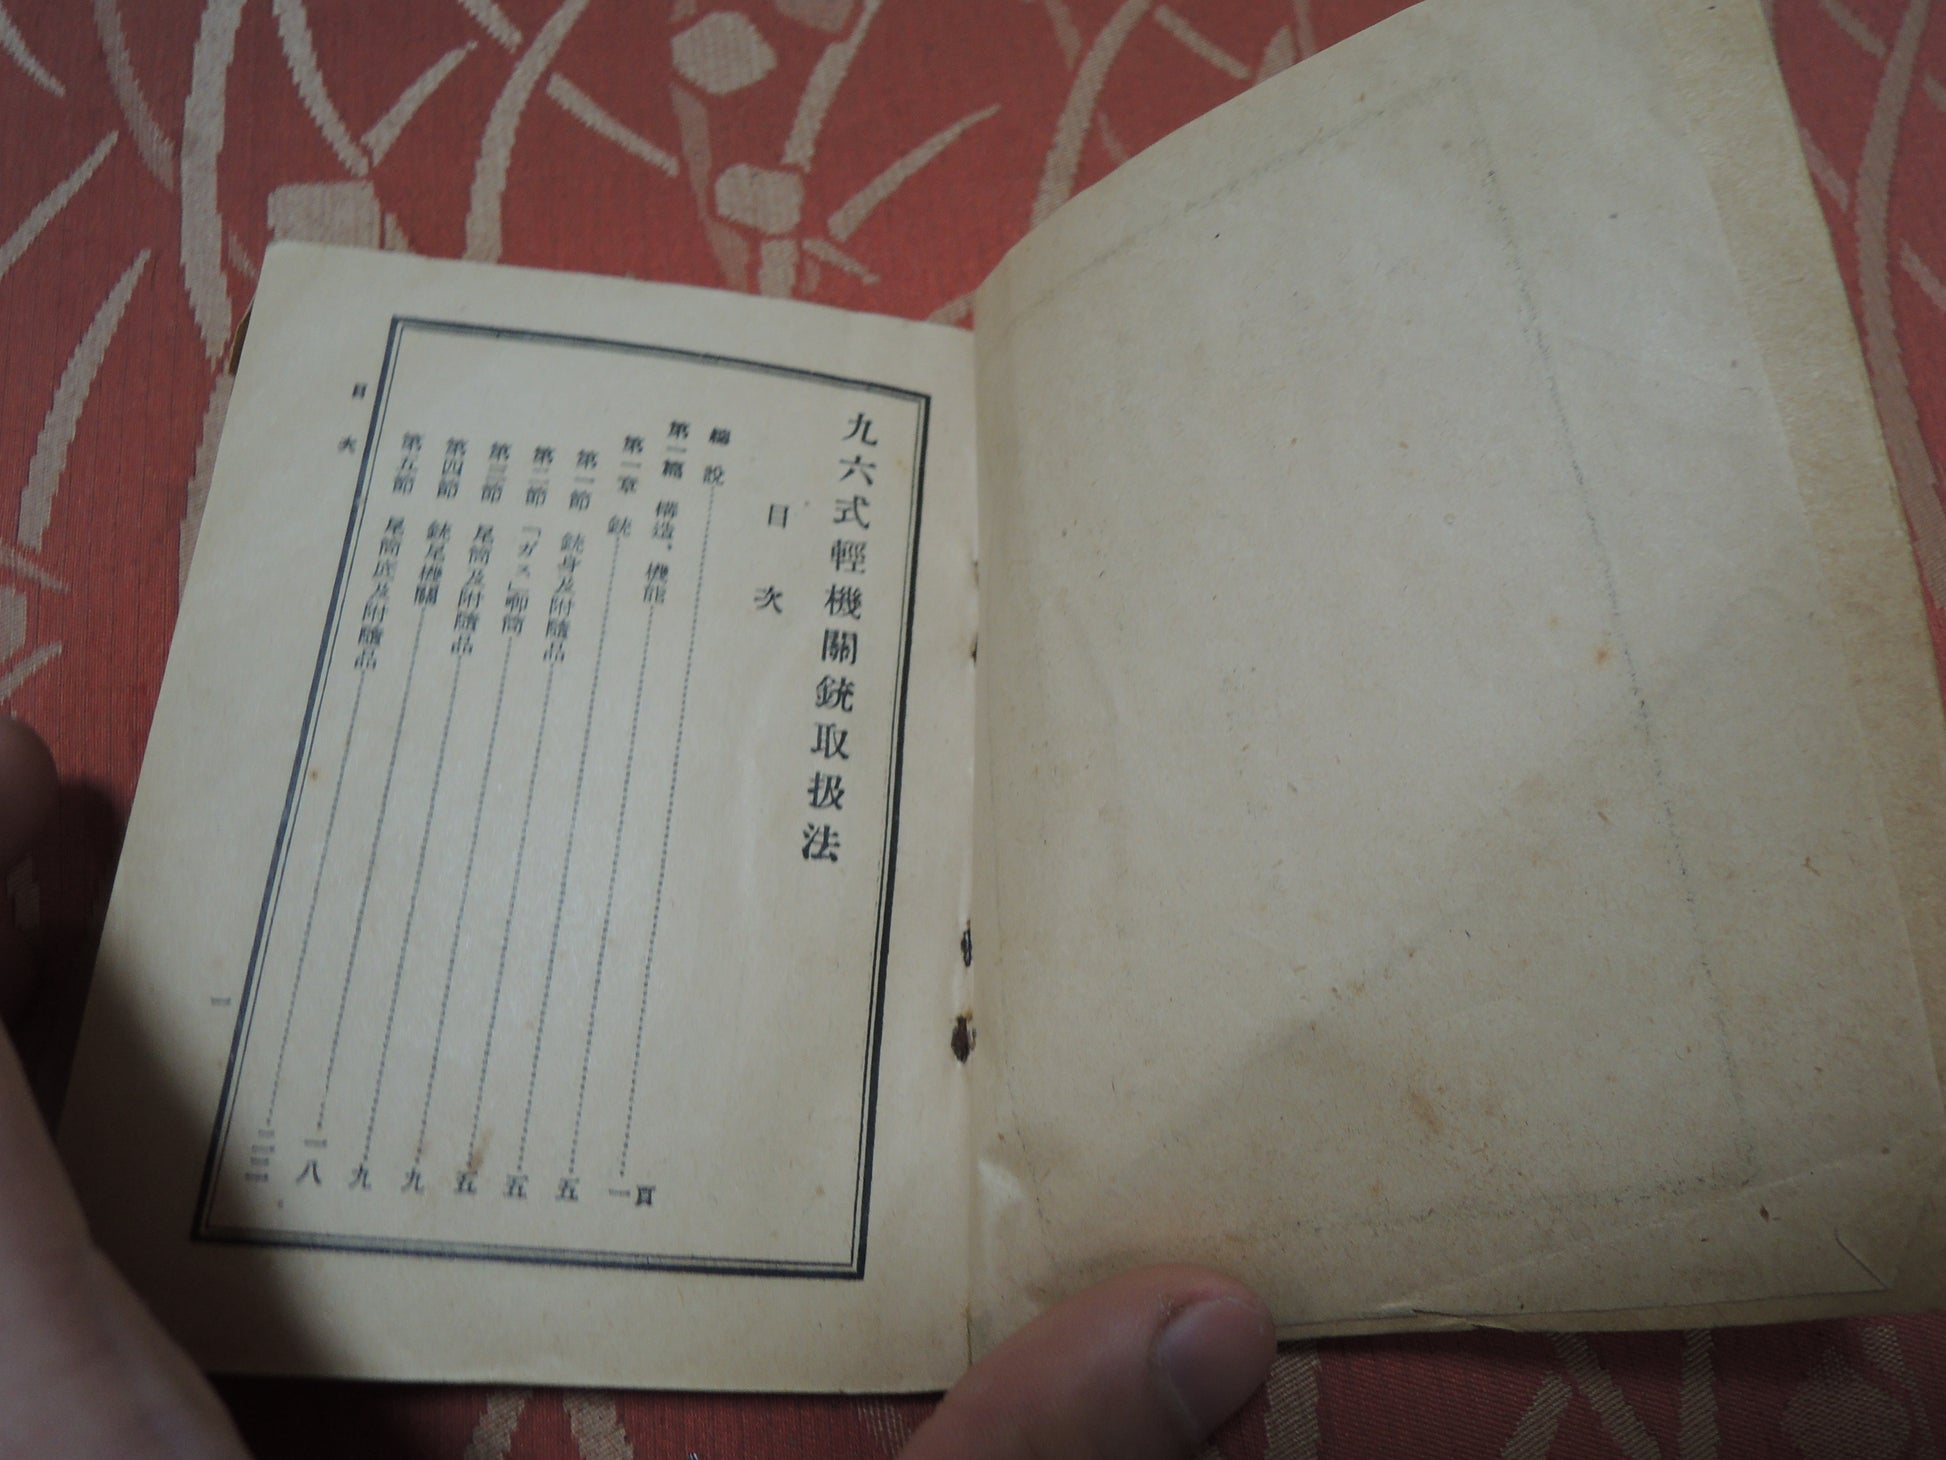 九六式輕機關銃取扱法
目次
總說 一頁
第一篇 構造、機能 一
第一章 銃 五
第一節 銃身及附隨品 五
第二節 「ガス」唧筒 五
第三節 尾筒及附隨品 九
第四節 銃尾機關 九
第五節 尾筒底及附隨品 一八
目次
一